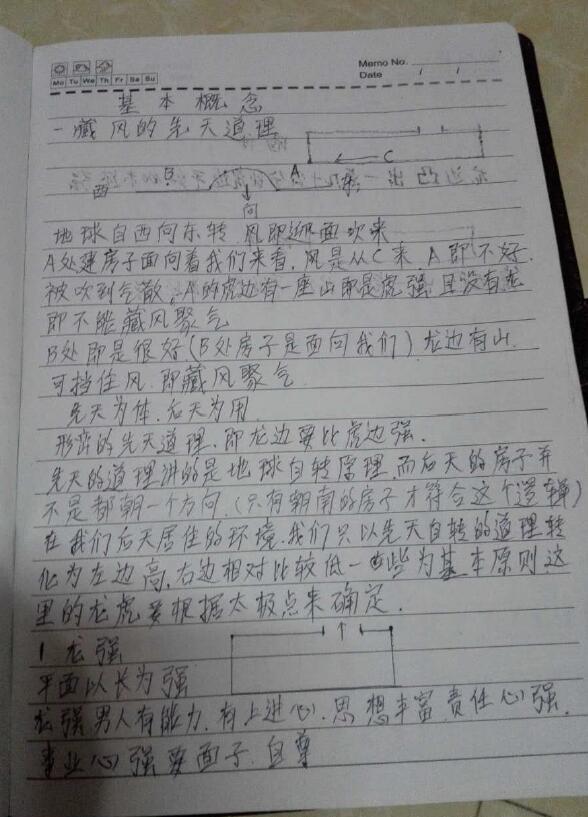 Memo No.
Mo Tu We Th Fr Sa Su
Date / /
基本概念
一藏风的先天道理
C
B A
西 东
向
地球自西向东转.风即迎面吹来
A处建房子面向着我们来看.风是从C来 A即不好.
被吹到气散,A的虎边有一座山即是虎强且没有龙
即不能藏风聚气
B处即是很好(B处房子是面向我们)龙边有山.
可挡住风.即藏风聚气.
先天为体.后天为用.
形峦的先天道理.即龙边要比虎边强.
先天的道理讲的是地球自转原理.而后天的房子并
不是都朝一个方向.(只有朝南的房子才符合这个逻辑)
在我们后天居住的环境.我们只以先天自转的道理转
化为左边高.右边相对比较低一些为基本原则这
里的龙虎要根据太极点来确定.
1 龙强
平面以长为强
龙强男人有能力.有上进心.思想丰富.责任心强.
事业心强要面子.自尊